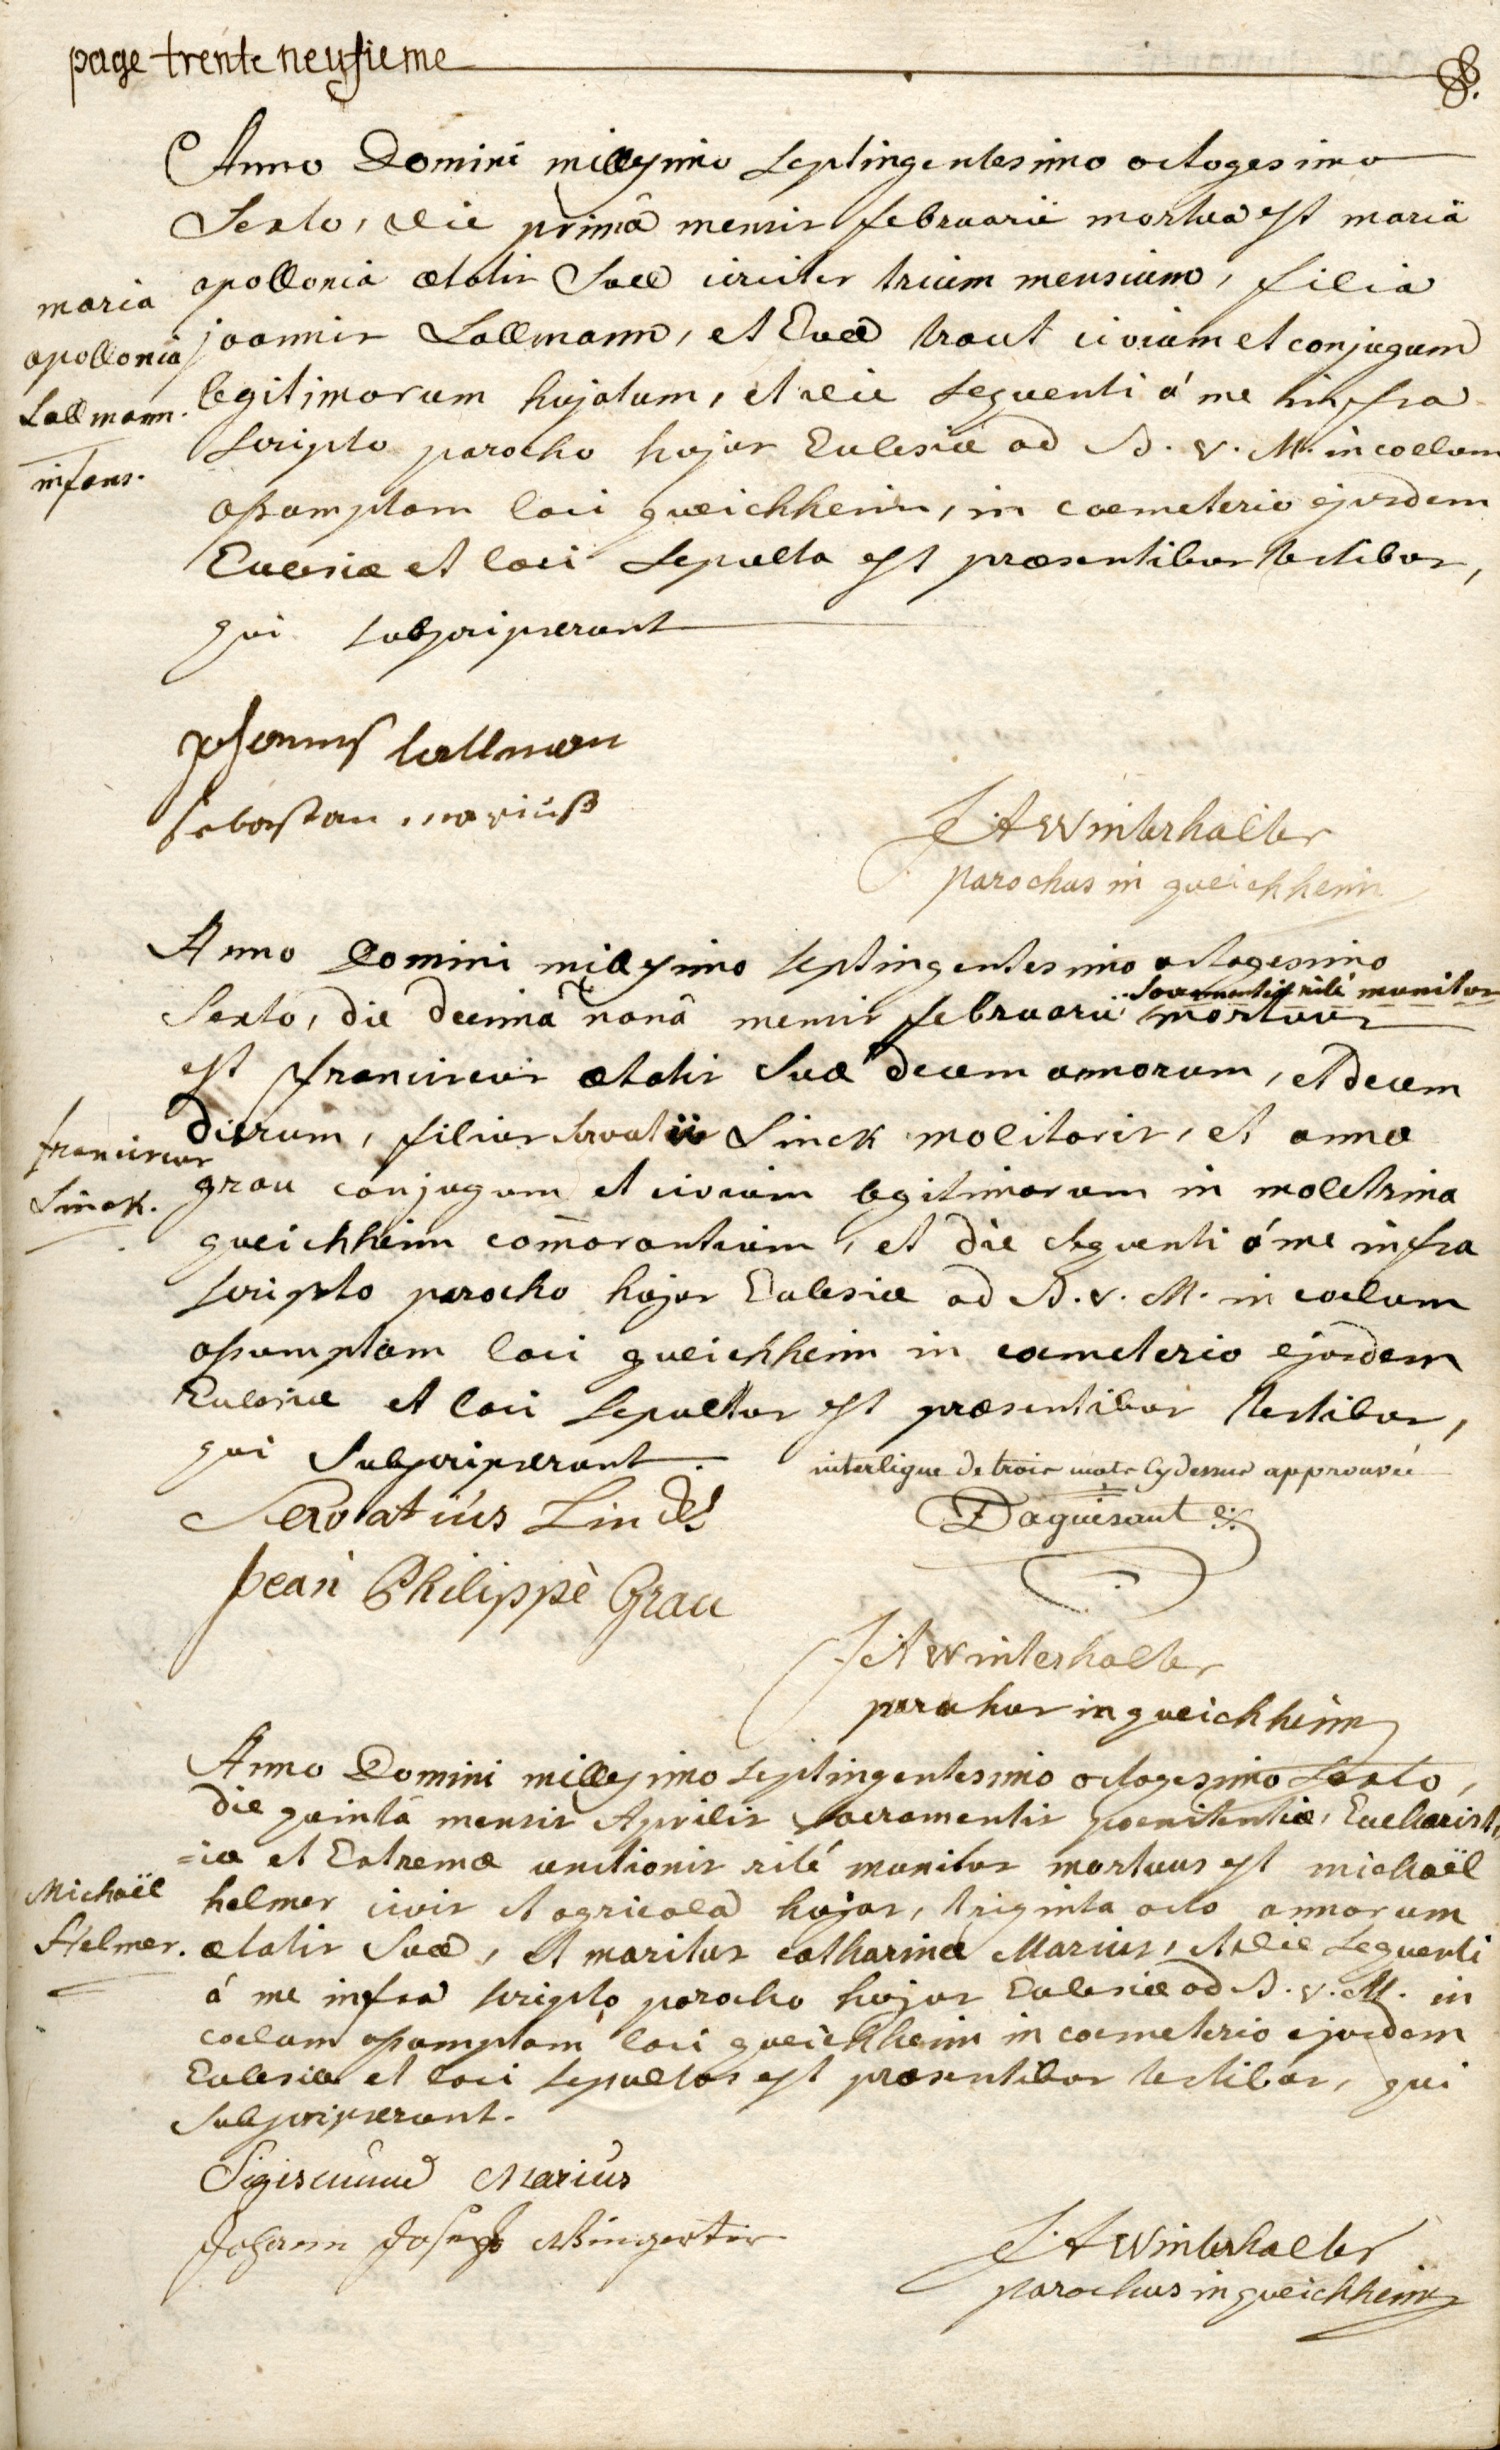 page trente neufieme
Anno Domini millesimo septingentesimo octogesimo
Sexto, die primâ mensis februarii mortua est maria
apollonia ætatis suæ circiter trium mensium, filia
joannis Lallmann, et Evæ traut civium et conjugum
legitimorum hujatum, et die sequenti á me infra
scripto parocho hujus Ecclesiæ ad B. V. M. in coelum
assumptam loci queichheim, in coemeterio ejusdem
Ecclesiæ et loci sepulta est præsentibus testibus,
qui subscripserunt
maria
apollonia
Lallmann.
infans.
Johannes lallman
sebastian mariuß
J A Winterhalter
parochus in queichheim
Anno Domini millesimo septingentesimo octogesimo
sacramentis rité munitus
Sexto, die decimâ nonâ mensis februarii mortuus
est franciscus ætatis suæ decem annorum, et decem
dierum, filius servatii Linck molitoris, et annæ
grau conjugum et civium legitimorum in moletrina
queichheim com̄orantium, et die sequenti á me infra
scripto parocho hujus Ecclesiæ ad B. V. M. in coelum
assumptam loci queichheim in coemeterio ejusdem
Ecclesiæ et loci sepultus est præsentibus testibus,
qui subscripserunt.
franciscus
Linck.
interligne de trois mots cydessus approuvée
Servatius Linck
Daguesaut
Jean Philippè Grau
J A Winterhalter
parochus in queichheim
Anno Domini millesimo septingentesimo octogesimo sexto,
die quintâ mensis Aprilis sacramentis poenitentiæ, Eucharist,
=iæ et Extremæ unctionis rité munitus mortuus est michaël
helmer civis et agricola hujas, triginta octo annorum
ætatis suæ, et maritus catharinæ Marius, et die sequenti
á me infra scripto parocho hujus Ecclesiæ ad B. V. M. in
coelum assumptam loci queichheim in coemeterio ejusdem
Ecclesiæ et loci sepultus est præsentibus testibus, qui
subscripserunt.
Michaël
Helmer.
Sigismund Marius
Johann Joseph
J A Winterhalter
parochus in queichheim